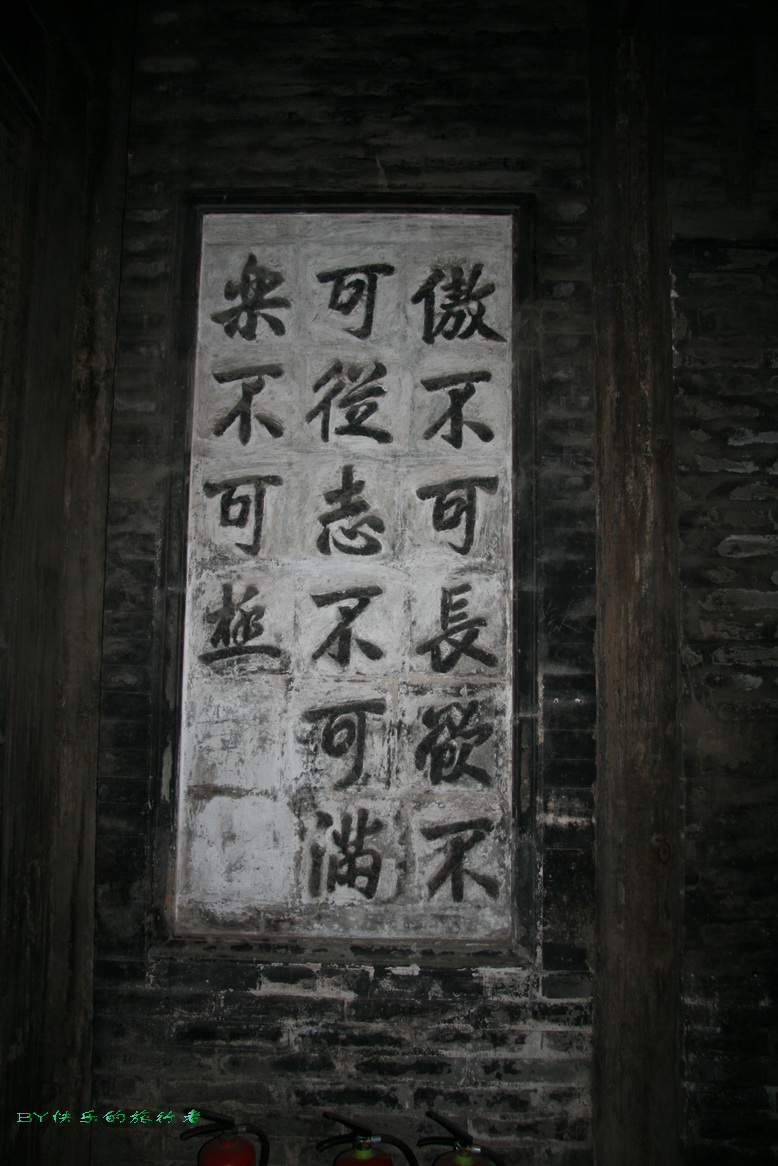 傲不可長欲不
可從志不可滿
樂不可極
BY快乐的旅行者